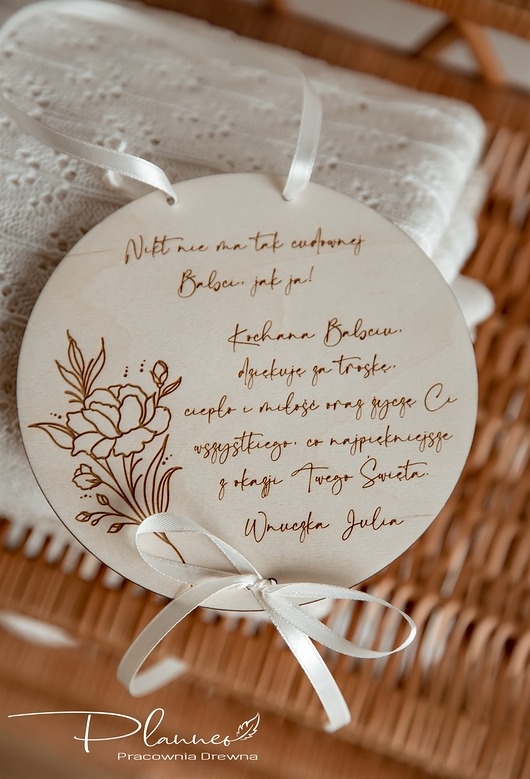 Nikt nie ma tak cudownej
Babci, jak ja!
Kochana Babciu,
dziękuję za troskę,
ciepło i miłość oraz życzę Ci
wszystkiego, co najpiękniejsze
z okazji Twego Święta.
Wnuczka Julia
Planneo
Pracownia Drewna